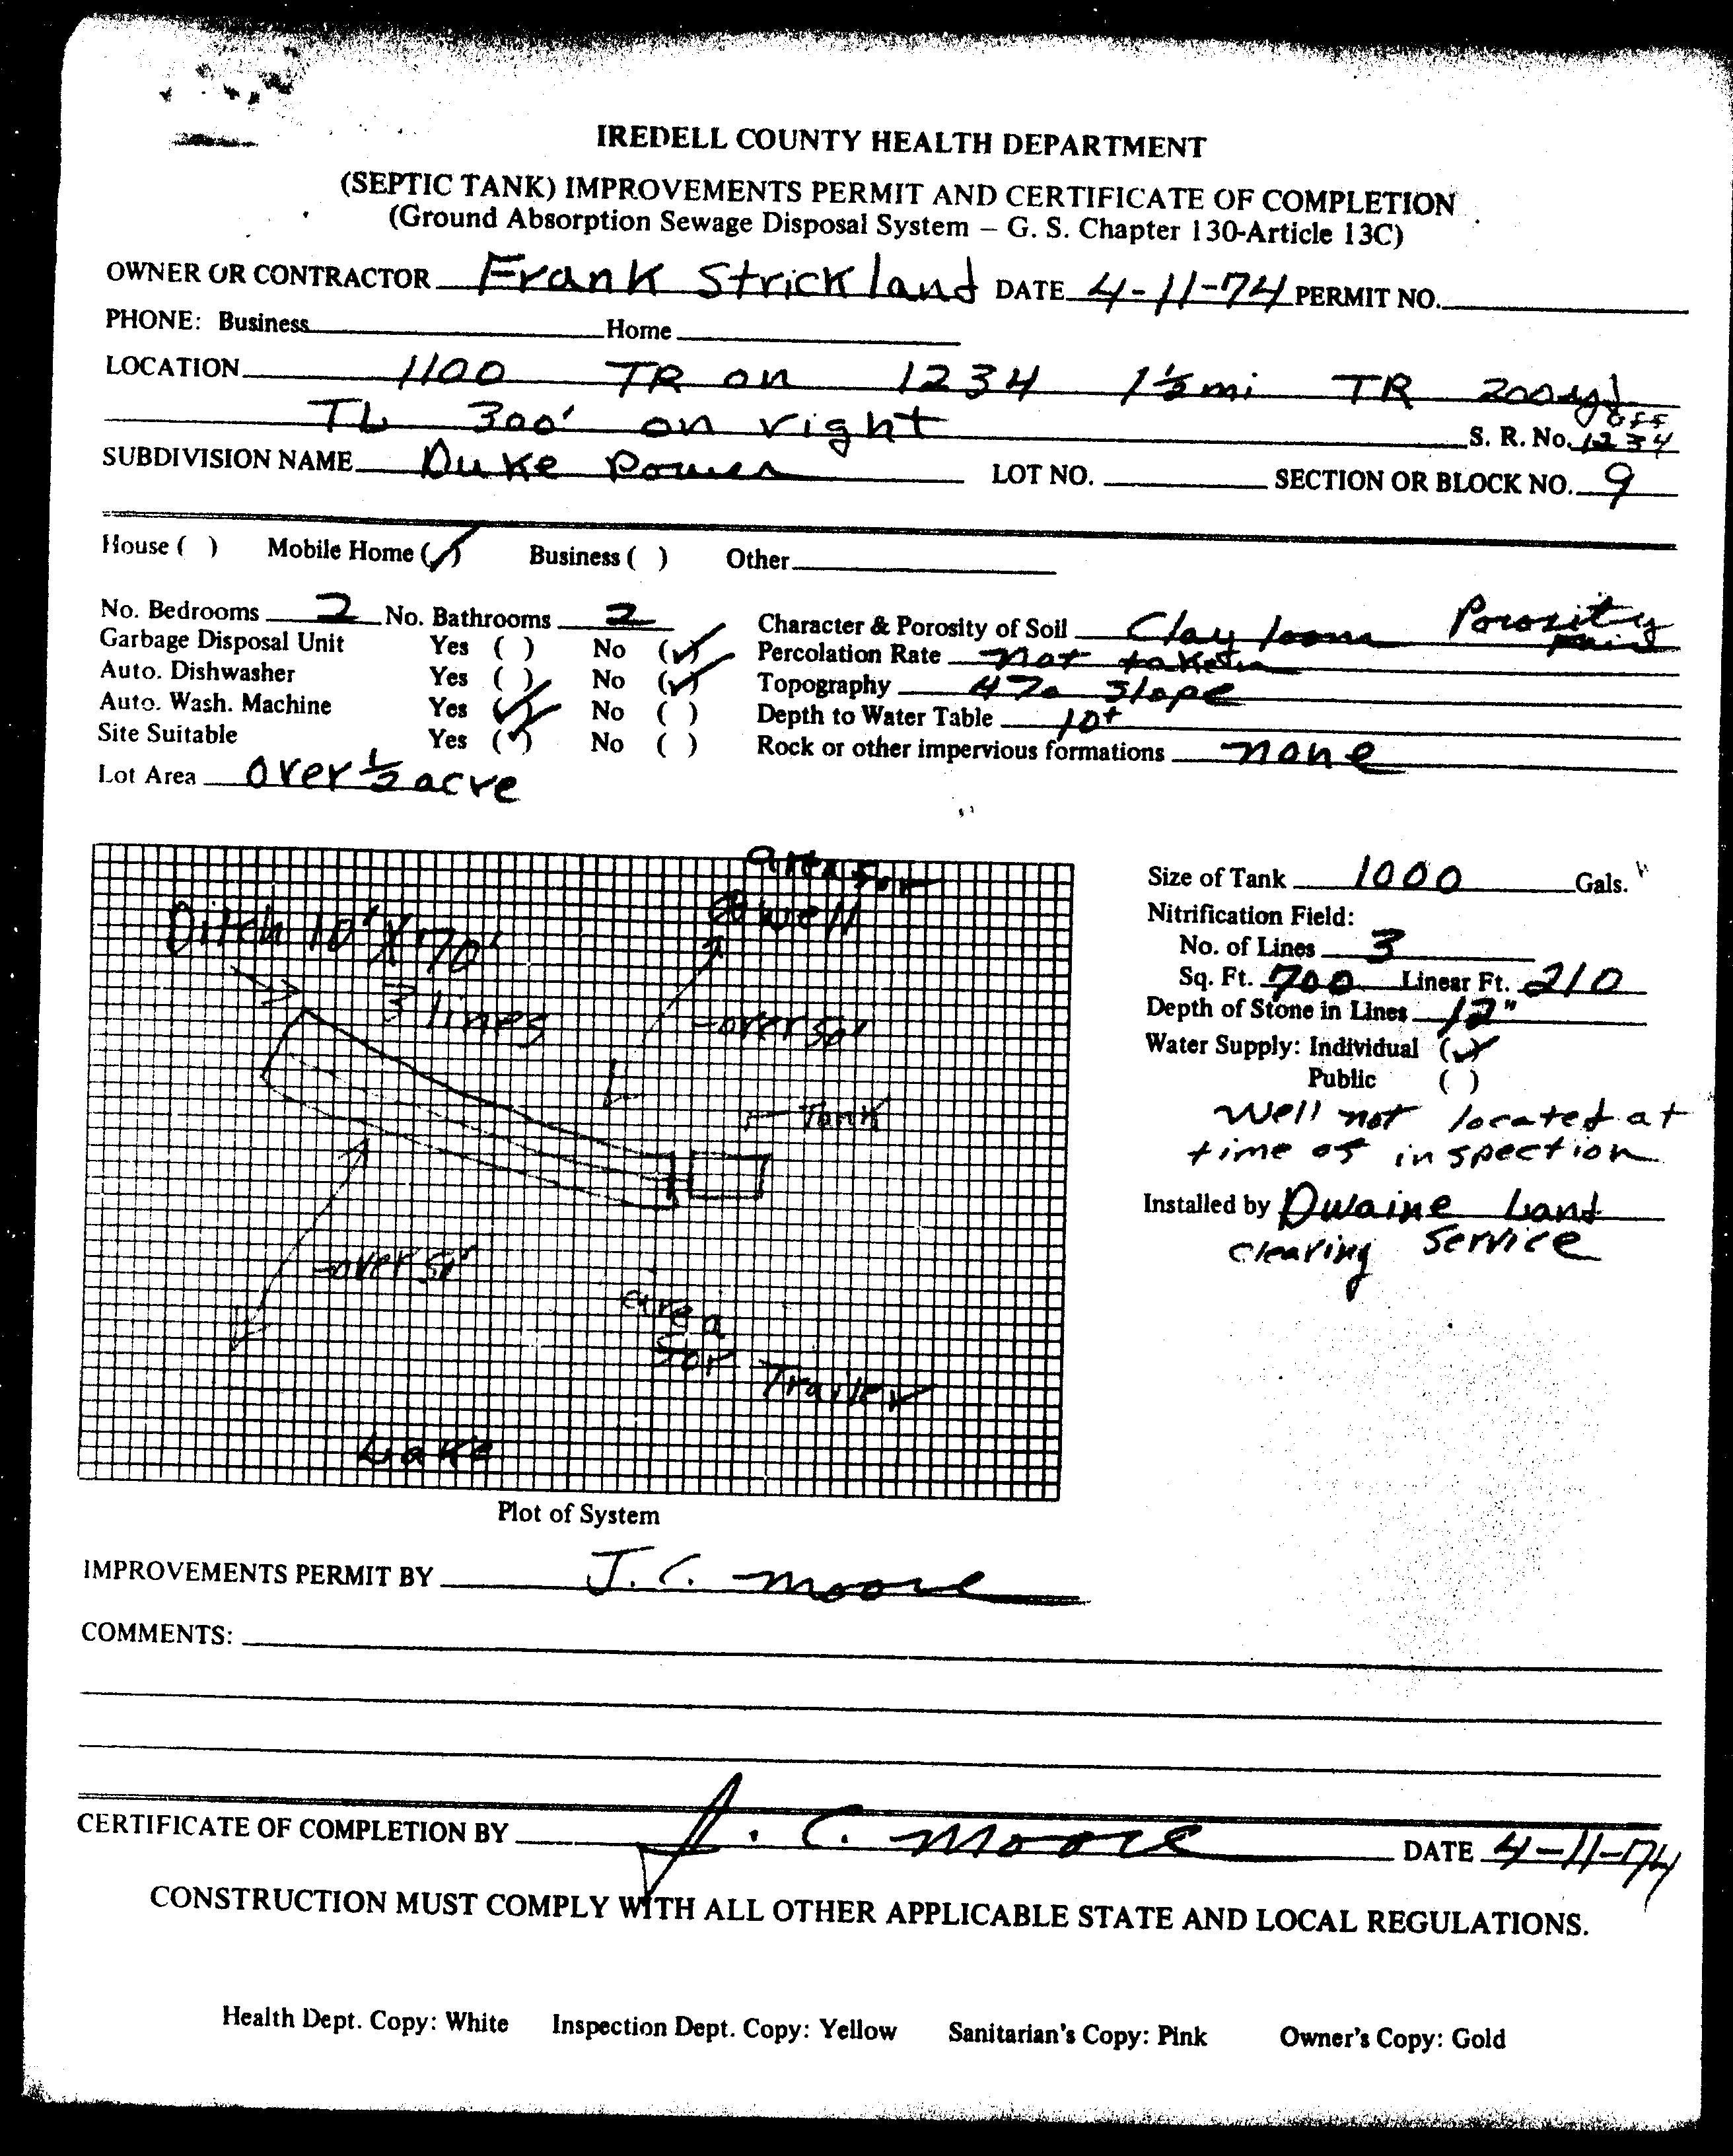 IREDELL COUNTY HEALTH DEPARTMENT
(SEPTIC TANK) IMPROVEMENTS PERMIT AND CERTIFICATE OF COMPLETION
(Ground Absorption Sewage Disposal System – G. S. Chapter 130-Article 13C)
OWNER OR CONTRACTOR Frank Strickland DATE 4-11-74 PERMIT NO.
PHONE: Business Home
LOCATION 1100 TR on 1234 1½ mi TR 200 yd
TL 300' on right off
S. R. No. 1234
SUBDIVISION NAME Duke Power LOT NO. SECTION OR BLOCK NO. 9
House ( ) Mobile Home (✓) Business ( ) Other
No. Bedrooms 2 No. Bathrooms 2 Character & Porosity of Soil Clay loam Porosity
Garbage Disposal Unit Yes ( ) No (✓) Percolation Rate not taken
Auto. Dishwasher Yes ( ) No (✓) Topography 4% slope
Auto. Wash. Machine Yes (✓) No ( ) Depth to Water Table 10+
Site Suitable Yes (✓) No ( ) Rock or other impervious formations none
Lot Area over ½ acre
area for
well
Ditch 10' X 70'
3 lines
over 50'
Tank
over 50'
area
for Trailer
Lake
Plot of System
Size of Tank 1000 Gals.
Nitrification Field:
No. of Lines 3
Sq. Ft. 700 Linear Ft. 210
Depth of Stone in Lines 12"
Water Supply: Individual (✓)
Public ( )
Well not located at
time of inspection
Installed by Dwaine Land
clearing Service
IMPROVEMENTS PERMIT BY J. C. Moore
COMMENTS:
CERTIFICATE OF COMPLETION BY J. C. Moore DATE 4-11-74
CONSTRUCTION MUST COMPLY WITH ALL OTHER APPLICABLE STATE AND LOCAL REGULATIONS.
Health Dept. Copy: White Inspection Dept. Copy: Yellow Sanitarian's Copy: Pink Owner's Copy: Gold